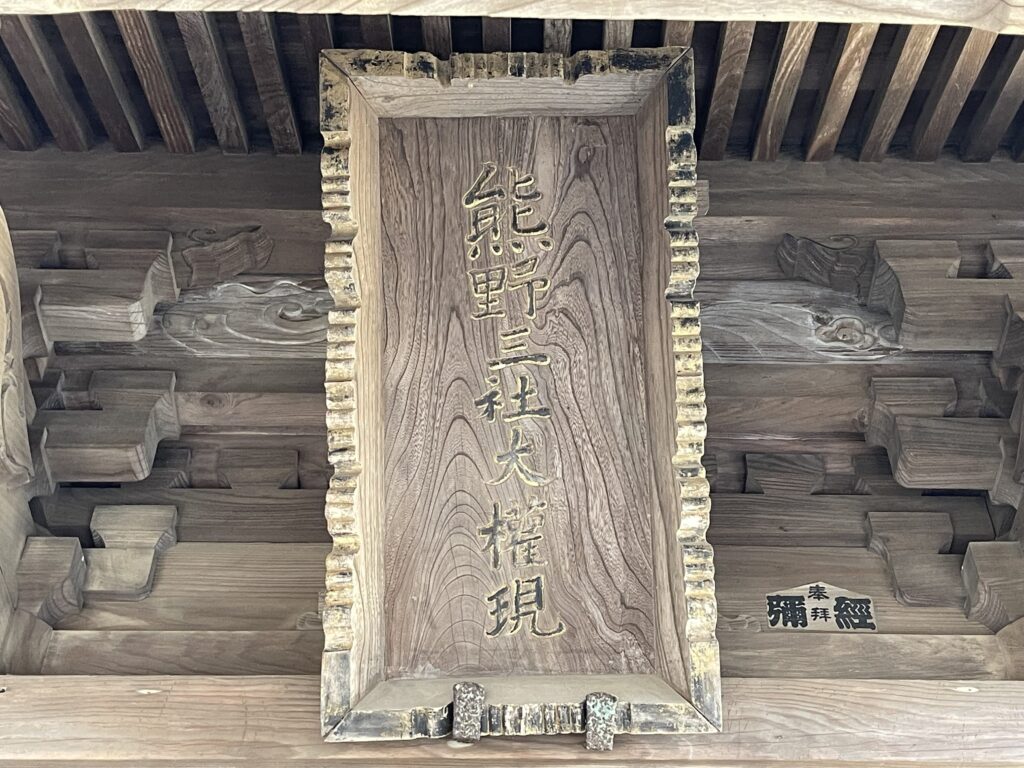 熊野三社大權現
奉拜
彌經